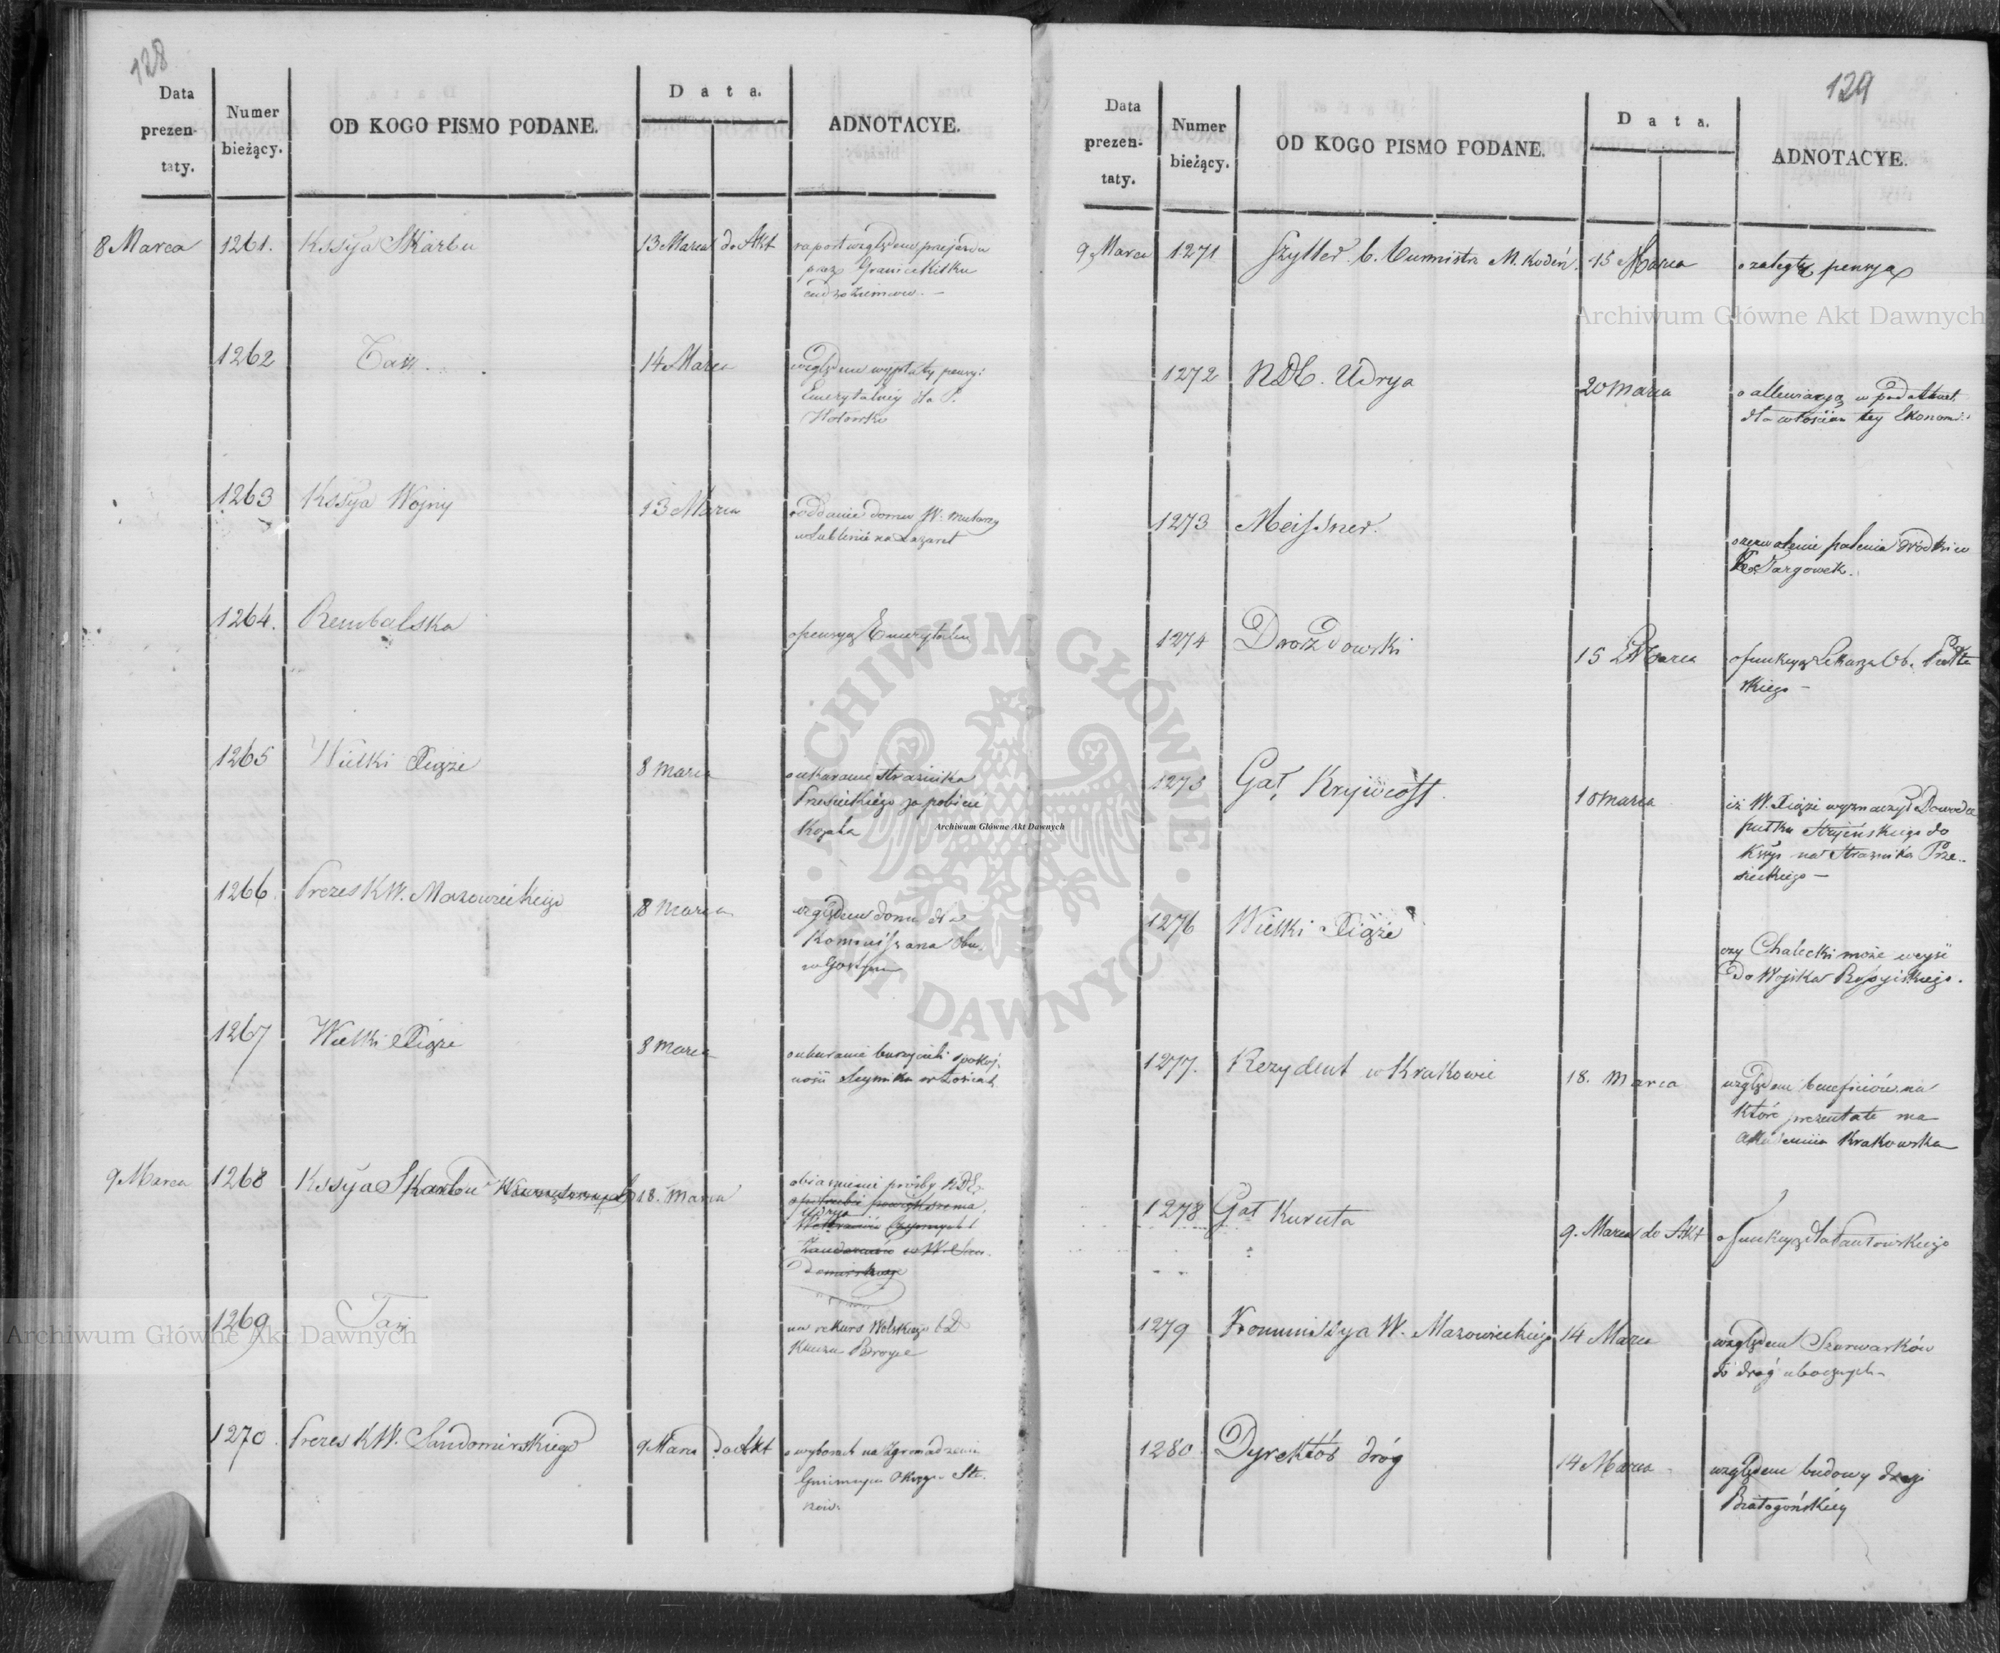 128
Data
prezen-
taty.
Numer
bieżący.
OD KOGO PISMO PODANE.
Data.
ADNOTACYE.
8 Marca 1261. Kssya Skarbu 13 Marca do Akt raport względem przejazdu
przez Granice Kilku
cudzoziemców. —
1262 Taż. 14 Marca względem wypłaty pensyi
Emerytalnéy dla P.
1263 Kssya Wojny 13 Marca oddanie domu W.
w Lublinie na Lazaret
1264. Rembalska o pensyą Emerytalną
1265 Wielki Xiąże 8 marca o ukaranie strażnika
Przesieckiego za pobicie
Kozaka
1266 Prezes K W. Mazowieckiego 8 marca względem domu dla
Kommissarza Obw.
w Gostyn
1267 Wielki Xiąże 8 marca o ukaranie burzycieli spokoj-
ności
9 Marca 1268 Kssya Skarbu 18. marca obiasnienie prośby NDE.
Udrya
1269 Taż
na rekurs Wolskiego
1270. Prezes KW. Sandomirskiego 9 Marca do Akt o wyborach na Zgromadzeniu
Gminnym Okręgu
129
Data
prezen-
taty.
Numer
bieżący.
OD KOGO PISMO PODANE.
Data.
ADNOTACYE.
9 Marca 1271 Szyller b. burmistrz M. Kodeń. 15 Marca o zaległą pensyą
1272 NDE. Udrya 20 marca o allewiacyą w podatkach
dla włościan tey Ekonomii
1273 Meissner.
o zezwolenie palenia wódki w
Targowek.
1274 Drozdowski 15 Marca o funkcyą Lekarza Ob. Pułtu
skiego —
1275 Gał. Krywcoff. 10 marca iż W. Xiąże wyznaczył Dowodcę
pułku Strzjeńskiego do
Kssyi nad Strażnika Prze-
sieckiego —
1276 Wielki Xiąże
czy Chalecki może wejść
do Wojska Rossyiskiego.
1277. Rezydent w Krakowie 18. marca względem beneficiów na
które prezentate ma
Akademiia Krakowska
1278 Gał Kuruta
9. Marca do Akt o funkcyą dla Pantowskiego
1279 Kommissya W. Mazowieckiego 14 Marca względem Szarwarków
do dróg ubocznych —
1280. Dyrektor dróg 14 Marca względem budowy drogi
Białogońskiey
Archiwum Główne Akt Dawnych
Archiwum Główne Akt Dawnych
Archiwum Główne Akt Dawnych
ARCHIWUM GŁÓWNE AKT DAWNYCH